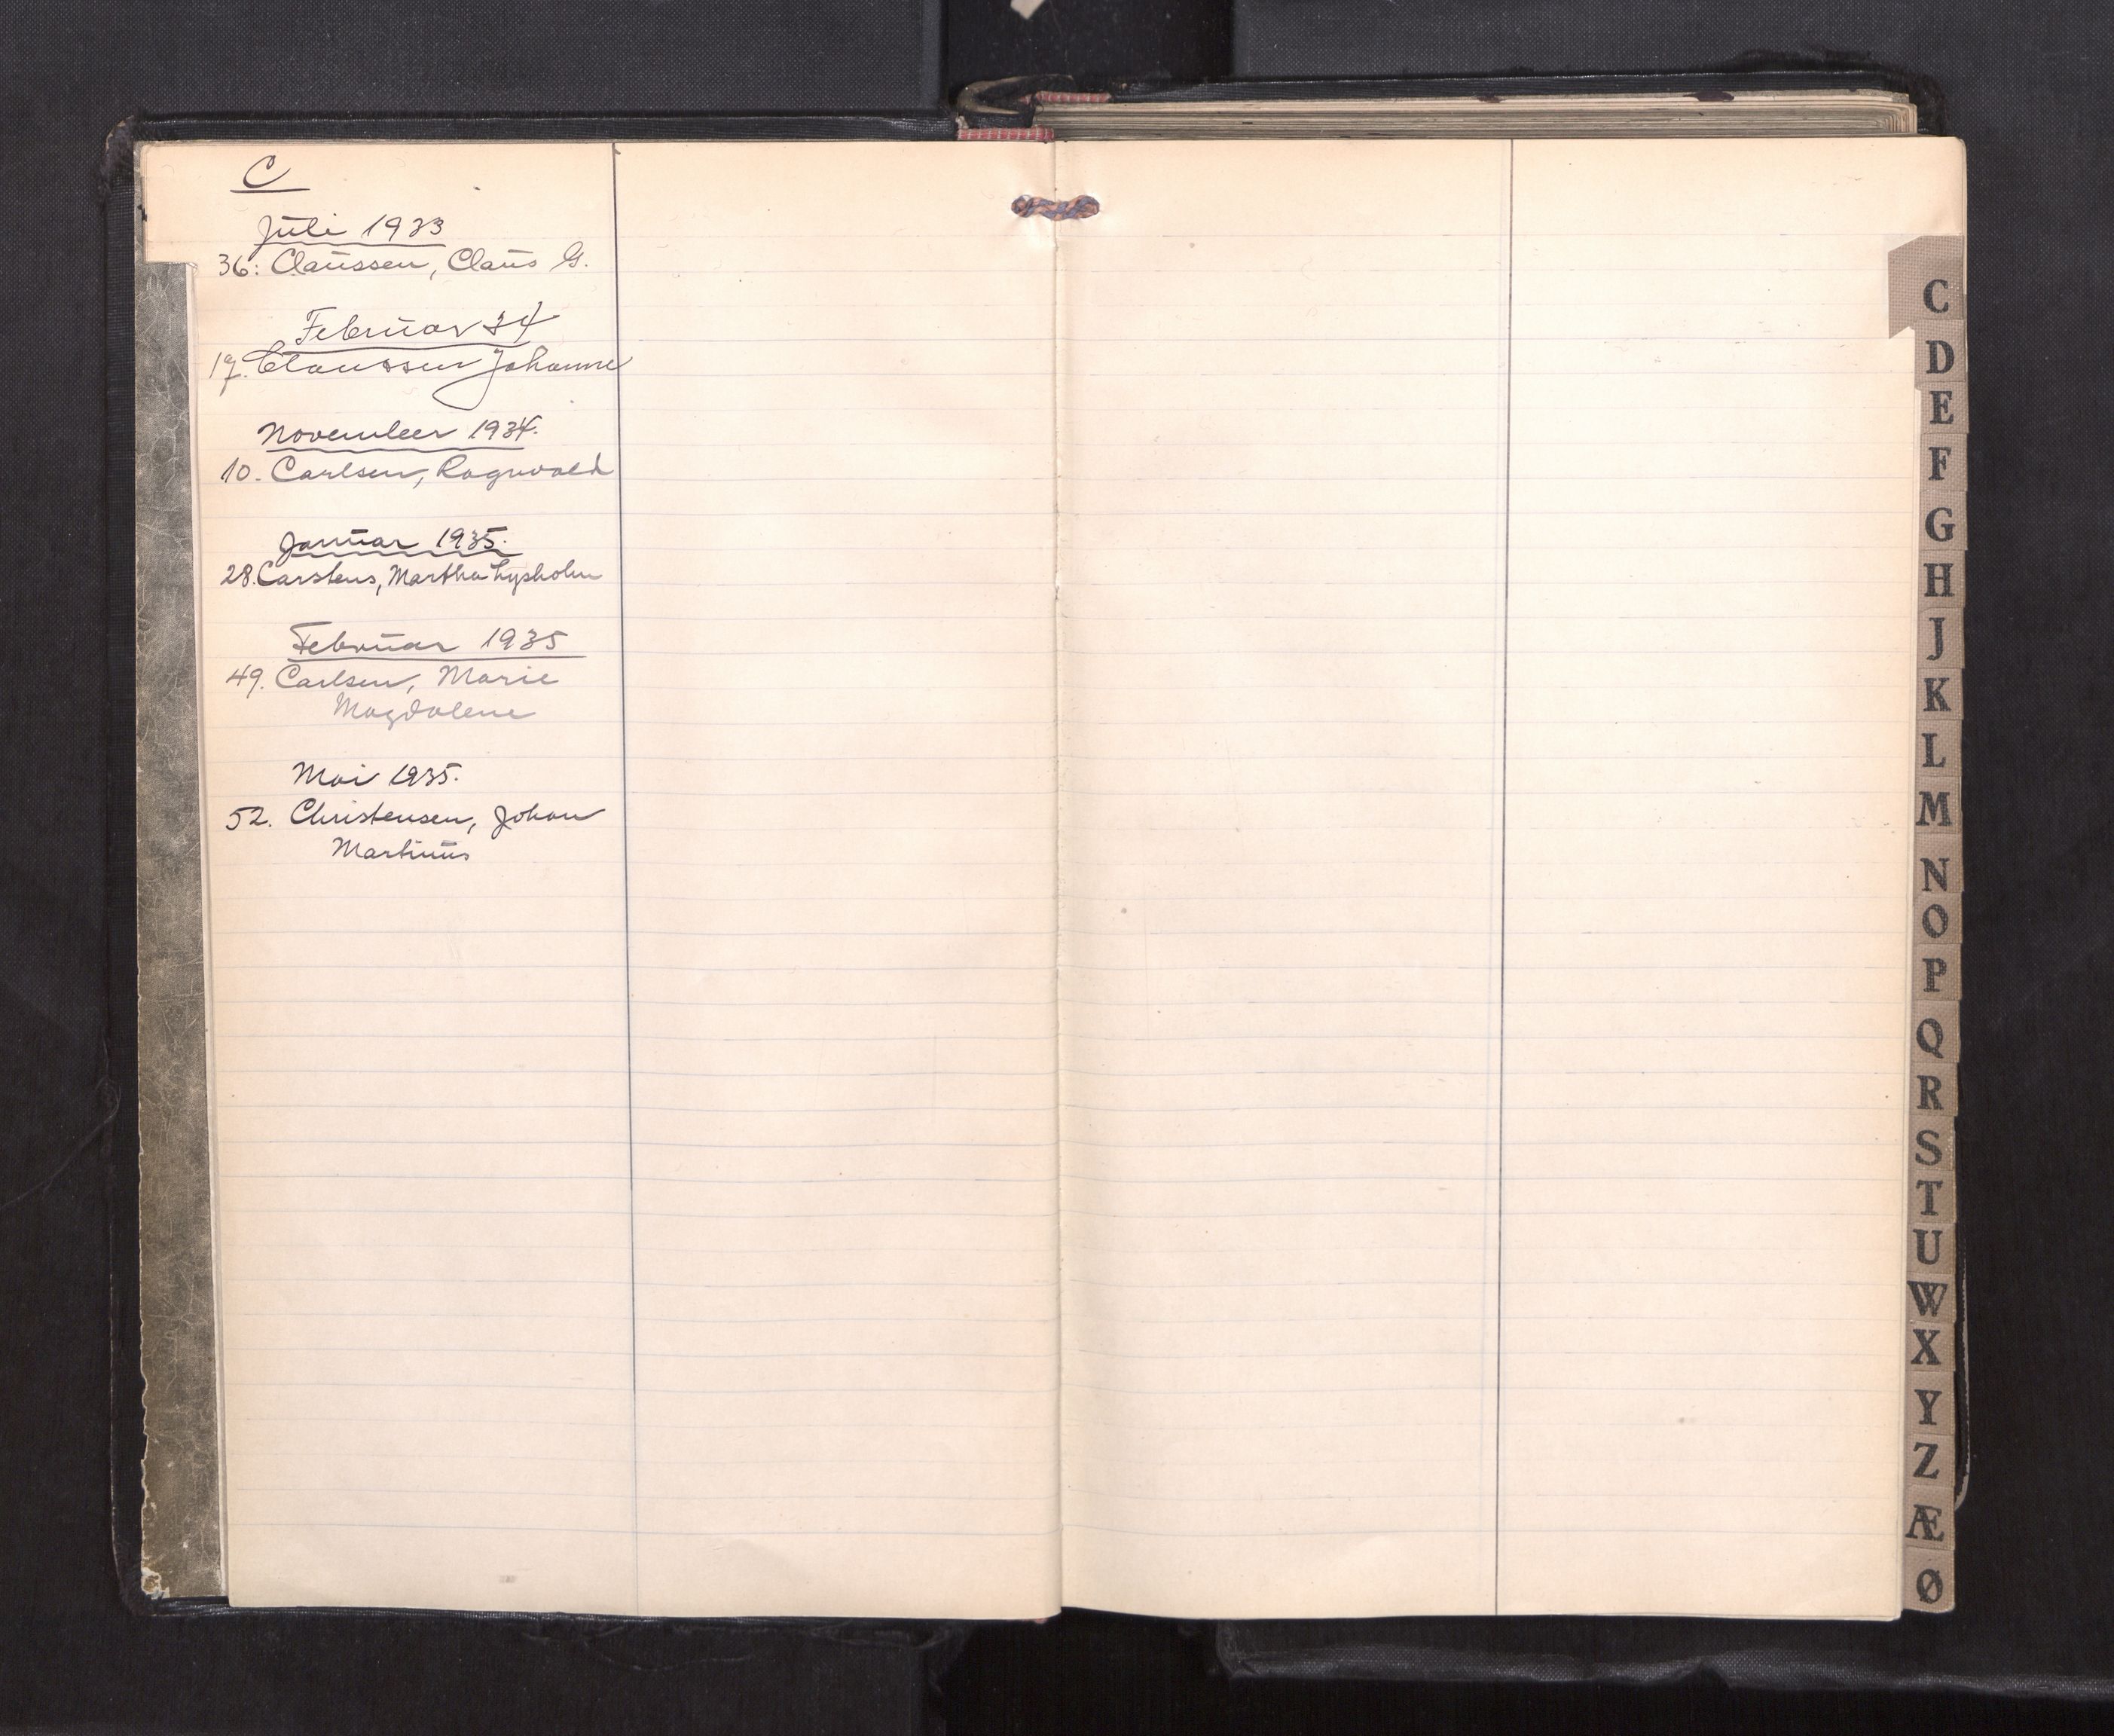 C
Juli 1933
36: Claussen, Claus G.
Februar 34
17. Claussen Johanne
November 1934.
10. Carlsen, Ragnvald
Januar 1935.
28. Carstens, Martha Lysholm
Februar 1935
49. Carlsen, Marie
Magdalene
Mai 1935.
52. Christensen, Johan
Martinus
C
D
E
F
G
H
J
K
L
M
N
O
P
Q
R
S
T
U
W
X
Y
Z
Æ
Ø